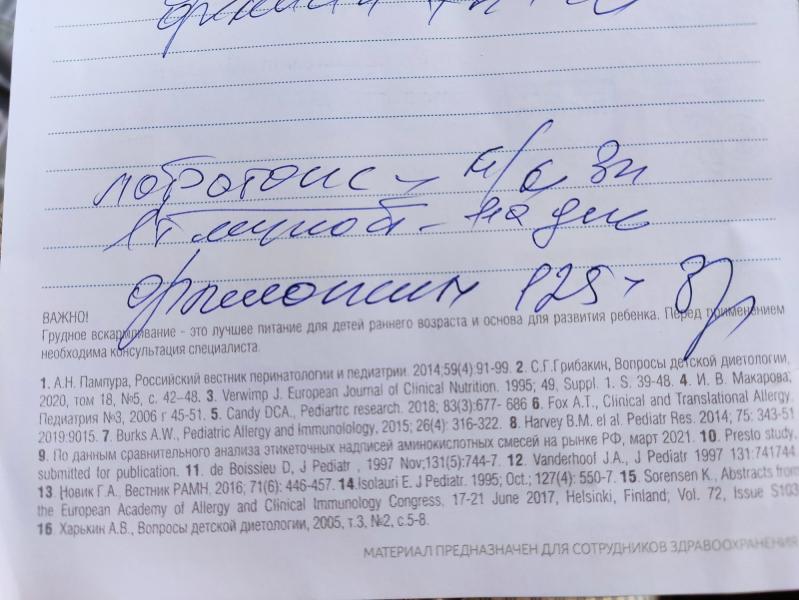 125 -
ВАЖНО!
Грудное вскармливание - это лучшее питание для детей раннего возраста и основа для развития ребенка. Перед применением
необходима консультация специалиста.
1. А.Н. Пампура, Российский вестник перинатологии и педиатрии. 2014;59(4):91-99. 2. С.Г.Грибакин, Вопросы детской диетологии,
2020, том 18, №5, с. 42–48. 3. Verwimp J. European Journal of Clinical Nutrition. 1995; 49, Suppl. 1. S. 39-48. 4. И. В. Макарова,
Педиатрия №3, 2006 г 45-51. 5. Candy DCA., Pediartrc research. 2018; 83(3):677- 686 6. Fox A.T., Clinical and Translational Allergy.
2019:9015. 7. Burks A.W., Pediatric Allergy and Immunolology, 2015; 26(4): 316-322. 8. Harvey B.M. el al. Pediatr Res. 2014; 75: 343-51
9. По данным сравнительного анализа этикеточных надписей аминокислотных смесей на рынке РФ, март 2021. 10. Presto study,
submitted for publication. 11. de Boissieu D, J Pediatr , 1997 Nov;131(5):744-7. 12. Vanderhoof J.A., J Pediatr 1997 131:741744.
13. Новик Г.А., Вестник РАМН. 2016; 71(6): 446-457. 14.Isolauri E. J Pediatr. 1995; Oct.; 127(4): 550-7. 15. Sorensen K., Abstracts from
the European Academy of Allergy and Clinical Immunology Congress, 17-21 June 2017, Helsinki, Finland; Vol. 72, Issue S103
16. Харькин А.В., Вопросы детской диетологии, 2005, т.3, №2, с.5-8.
МАТЕРИАЛ ПРЕДНАЗНАЧЕН ДЛЯ СОТРУДНИКОВ ЗДРАВООХРАНЕНИЯ